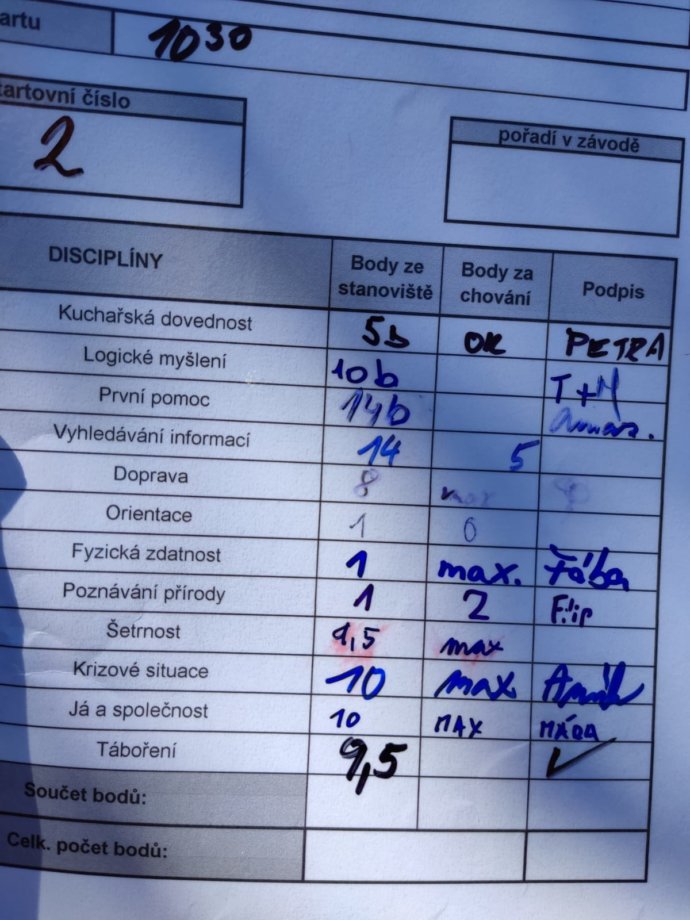 artu 10 30
tartovní číslo
2
pořadí v závodě
DISCIPLÍNY Body ze stanoviště Body za chování Podpis
Kuchařská dovednost 5b OK PETRA
Logické myšlení 10b T+M
První pomoc 14b
Vyhledávání informací 14 5
Doprava 8 max
Orientace 1 0
Fyzická zdatnost 1 max. Fába
Poznávání přírody 1 2 Filip
Šetrnost 9,5 max
Krizové situace 10 max.
Já a společnost 10 MAX
Táboření 9,5 ✓
Součet bodů:
Celk. počet bodů: